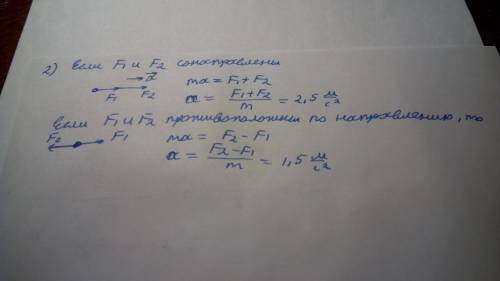 2) Если F₁ и F₂ сонаправлены
a⃗ ma = F₁ + F₂
F₁ F₂ a = (F₁ + F₂)/m = 2,5 м/с²
Если F₁ и F₂ противоположны по направлению, то
F₂ F₁ ma = F₂ - F₁
a = (F₂ - F₁)/m = 1,5 м/с²